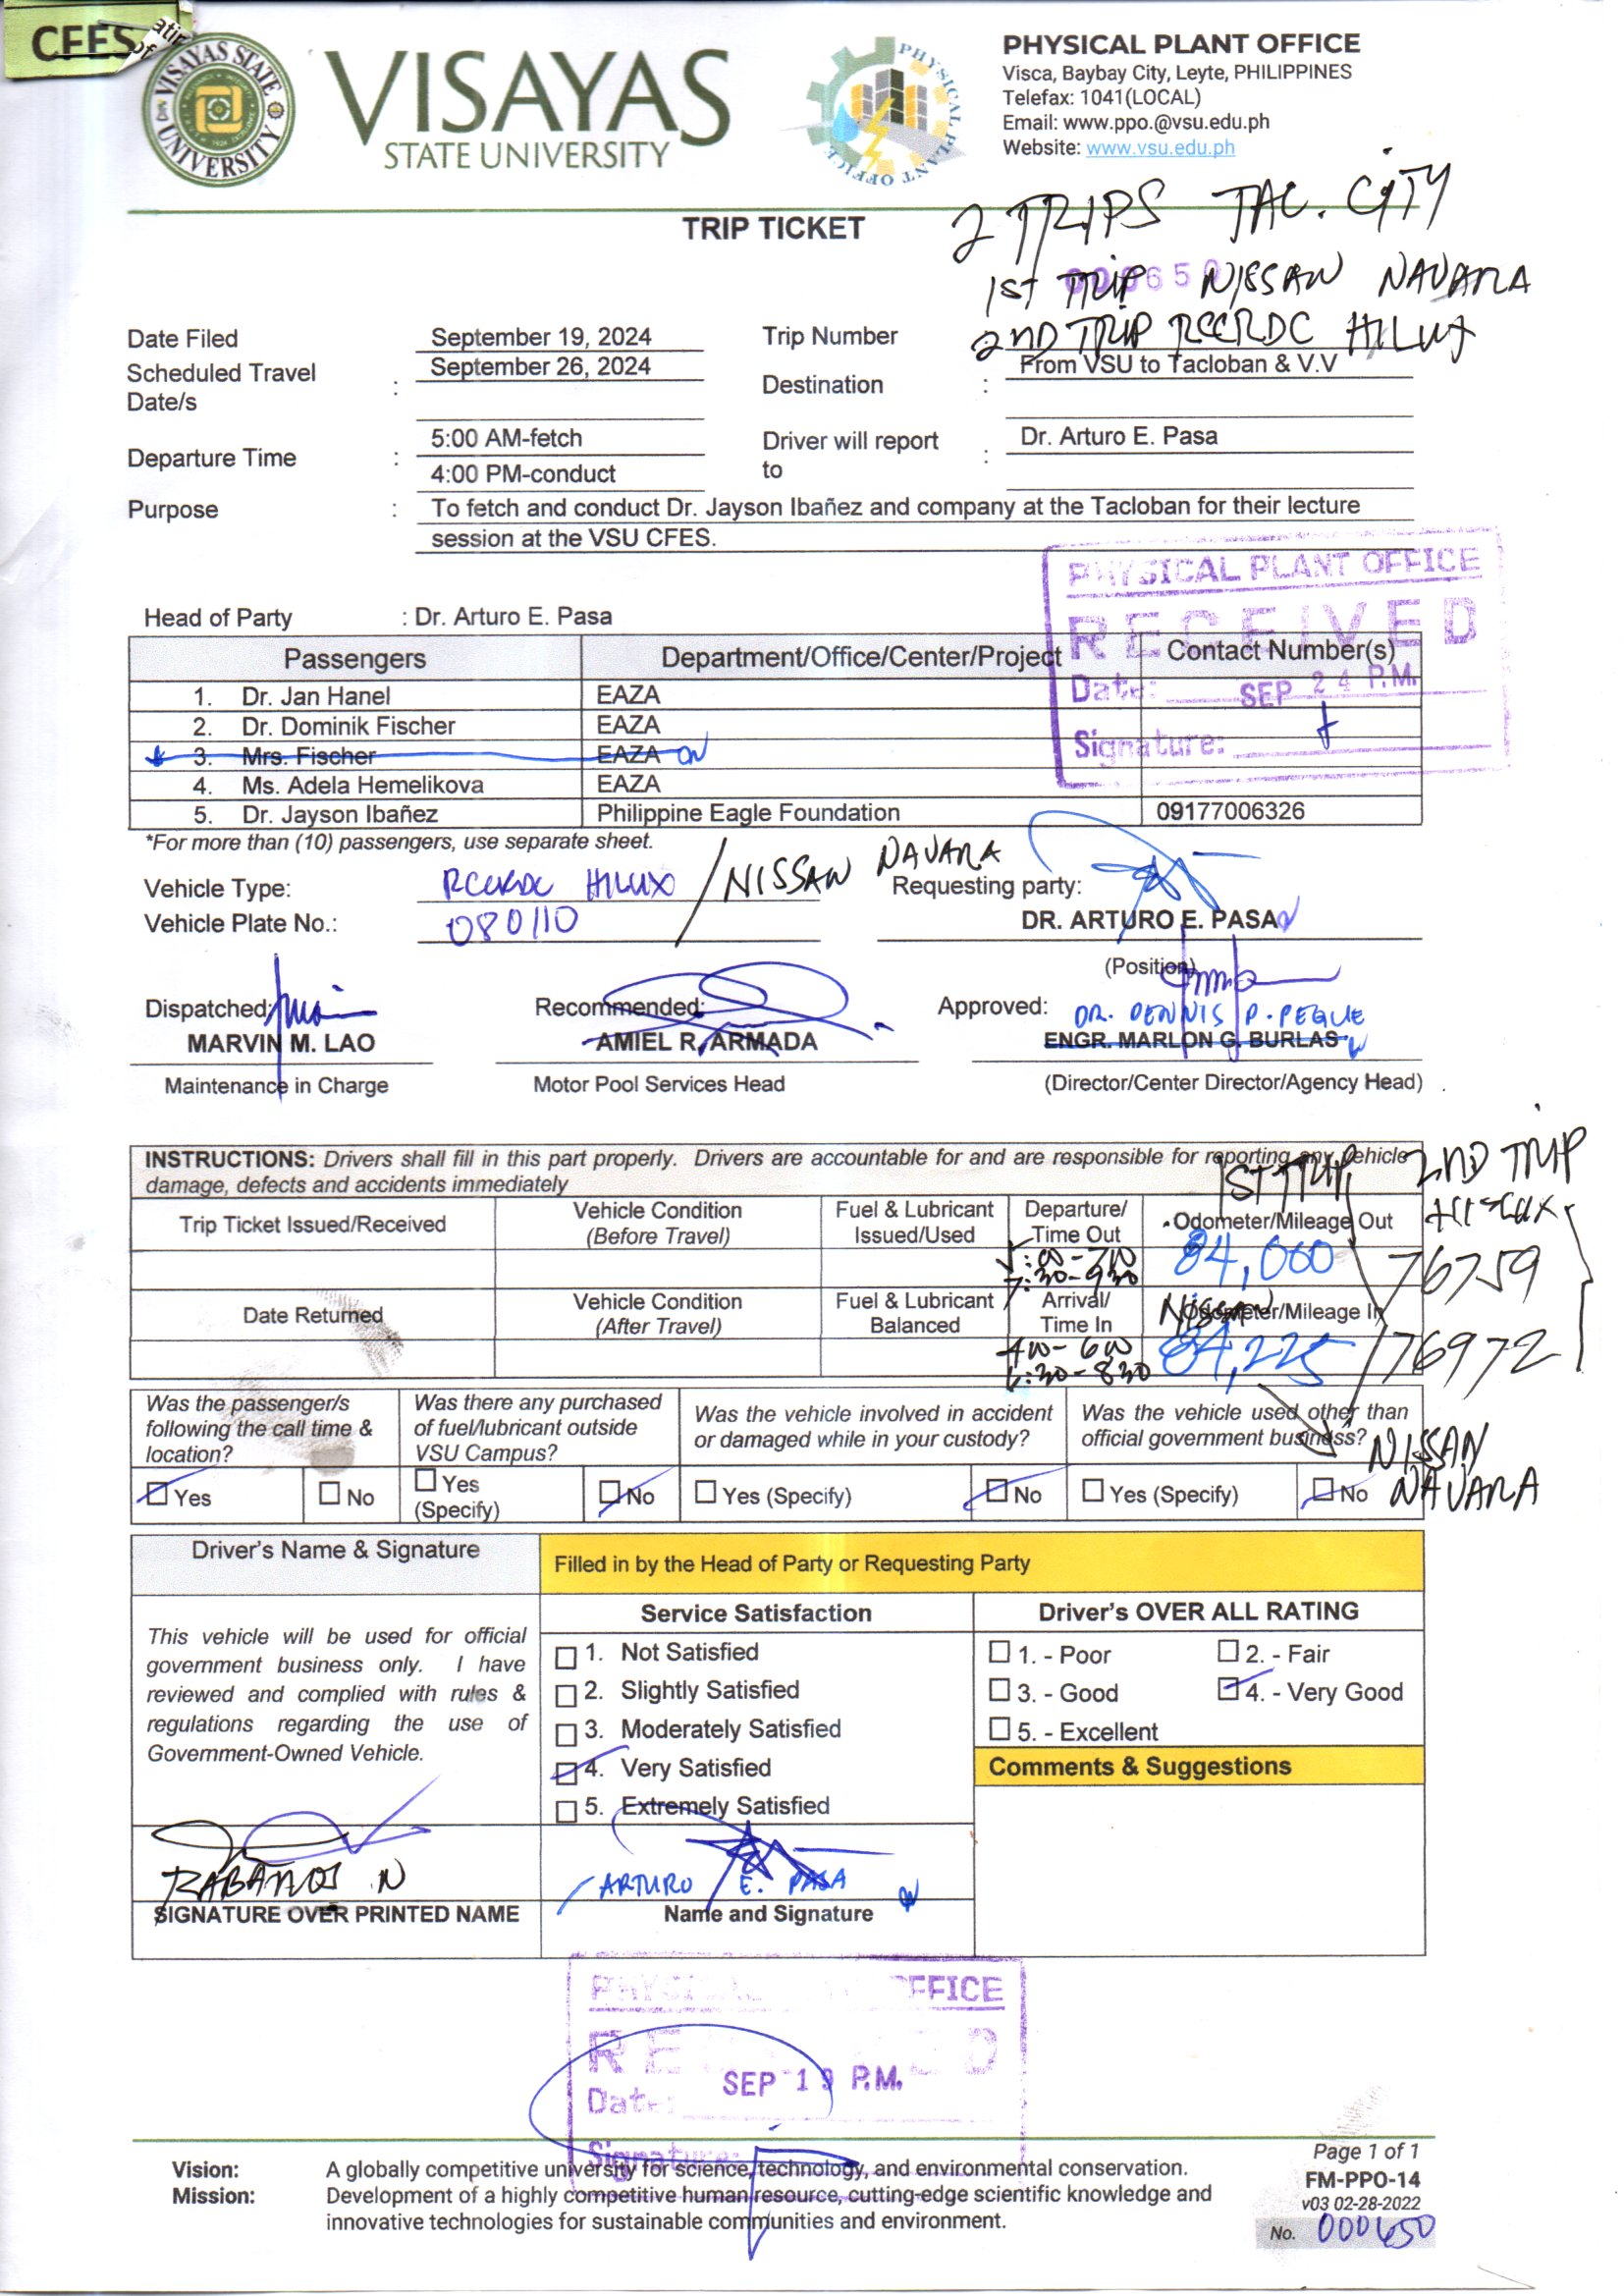 CFES
VISAYAS STATE UNIVERSITY
VISAYAS
STATE UNIVERSITY
PHYSICAL PLANT OFFICE
PHYSICAL PLANT OFFICE
Visca, Baybay City, Leyte, PHILIPPINES
Telefax: 1041(LOCAL)
Email: www.ppo.@vsu.edu.ph
Website: www.vsu.edu.ph
TRIP TICKET
2 TRIPS TAC. CITY
1ST TRIP NISSAN NAVARA
2ND TRIP RCCRDC HILUX
Date Filed September 19, 2024 Trip Number
Scheduled Travel Date/s : September 26, 2024 Destination : From VSU to Tacloban & V.V
Departure Time : 5:00 AM-fetch
4:00 PM-conduct
Driver will report to : Dr. Arturo E. Pasa
Purpose : To fetch and conduct Dr. Jayson Ibañez and company at the Tacloban for their lecture
session at the VSU CFES.
PHYSICAL PLANT OFFICE
RECEIVED
Date: SEP 24 P.M.
Signature:
Head of Party : Dr. Arturo E. Pasa
Passengers Department/Office/Center/Project Contact Number(s)
1. Dr. Jan Hanel EAZA
2. Dr. Dominik Fischer EAZA
3. Mrs. Fischer EAZA
4. Ms. Adela Hemelikova EAZA
5. Dr. Jayson Ibañez Philippine Eagle Foundation 09177006326
*For more than (10) passengers, use separate sheet.
Vehicle Type: RCCRDC HILUX / NISSAN NAVARA
Vehicle Plate No.: 080110
Requesting party:
DR. ARTURO E. PASA
(Position)
Dispatched: Recommended: Approved: DR. DENNIS P. PEQUE
MARVIN M. LAO AMIEL R. ARMADA ENGR. MARLON G. BURLAS
Maintenance in Charge Motor Pool Services Head (Director/Center Director/Agency Head)
INSTRUCTIONS: Drivers shall fill in this part properly. Drivers are accountable for and are responsible for reporting any vehicle
damage, defects and accidents immediately
1ST TRIP 2ND TRIP
HILUX
Trip Ticket Issued/Received Vehicle Condition (Before Travel) Fuel & Lubricant Issued/Used Departure/ Time Out Odometer/Mileage Out
5:00-7:00
7:30-930
84,000 76759
Date Returned Vehicle Condition (After Travel) Fuel & Lubricant Balanced Arrival/ Time In Odometer/Mileage In
Nissan
400-600
6:30-830
84,225 76972
NISSAN
NAVARA
Was the passenger/s following the call time & location?
Was there any purchased of fuel/lubricant outside VSU Campus?
Was the vehicle involved in accident or damaged while in your custody?
Was the vehicle used other than official government business?
Yes No Yes (Specify) No Yes (Specify) No Yes (Specify) No
Driver's Name & Signature Filled in by the Head of Party or Requesting Party
This vehicle will be used for official
government business only. I have
reviewed and complied with rules &
regulations regarding the use of
Government-Owned Vehicle.
Service Satisfaction
1. Not Satisfied
2. Slightly Satisfied
3. Moderately Satisfied
4. Very Satisfied
5. Extremely Satisfied
Driver's OVER ALL RATING
1. - Poor 2. - Fair
3. - Good 4. - Very Good
5. - Excellent
Comments & Suggestions
RABANOS N
SIGNATURE OVER PRINTED NAME
ARTURO E. PASA
Name and Signature
PHYSICAL OFFICE
RECEIVED
Date: SEP 19 P.M.
Signature:
Vision: A globally competitive university for science, technology, and environmental conservation.
Mission: Development of a highly competitive human resource, cutting-edge scientific knowledge and
innovative technologies for sustainable communities and environment.
Page 1 of 1
FM-PPO-14
v03 02-28-2022
No. 000650